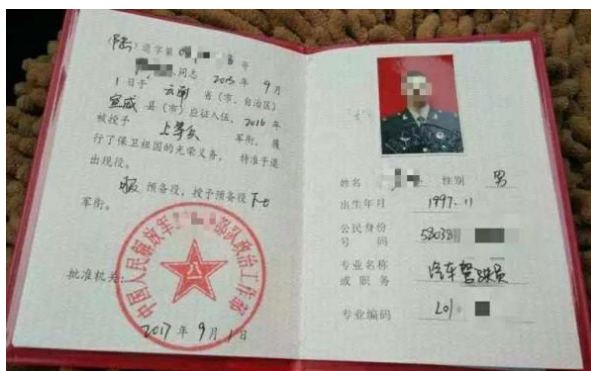 (陆)退字第0 8号
同志 2015年9月
1日于 云南 省(市、自治区)
宣威 县(市)应征入伍，2016年
被授予 上等兵 军衔，履
行了保卫祖国的光荣义务，特准予退
出现役。
服 预备役，授予预备役 下士
军衔。
批准机关：
中国人民解放军 部队政治工作部
2017年9月1日
姓名 性别 男
出生年月 1997.11
公民身份
号码 53038
专业名称 汽车驾驶员
或职务
专业编码 L01